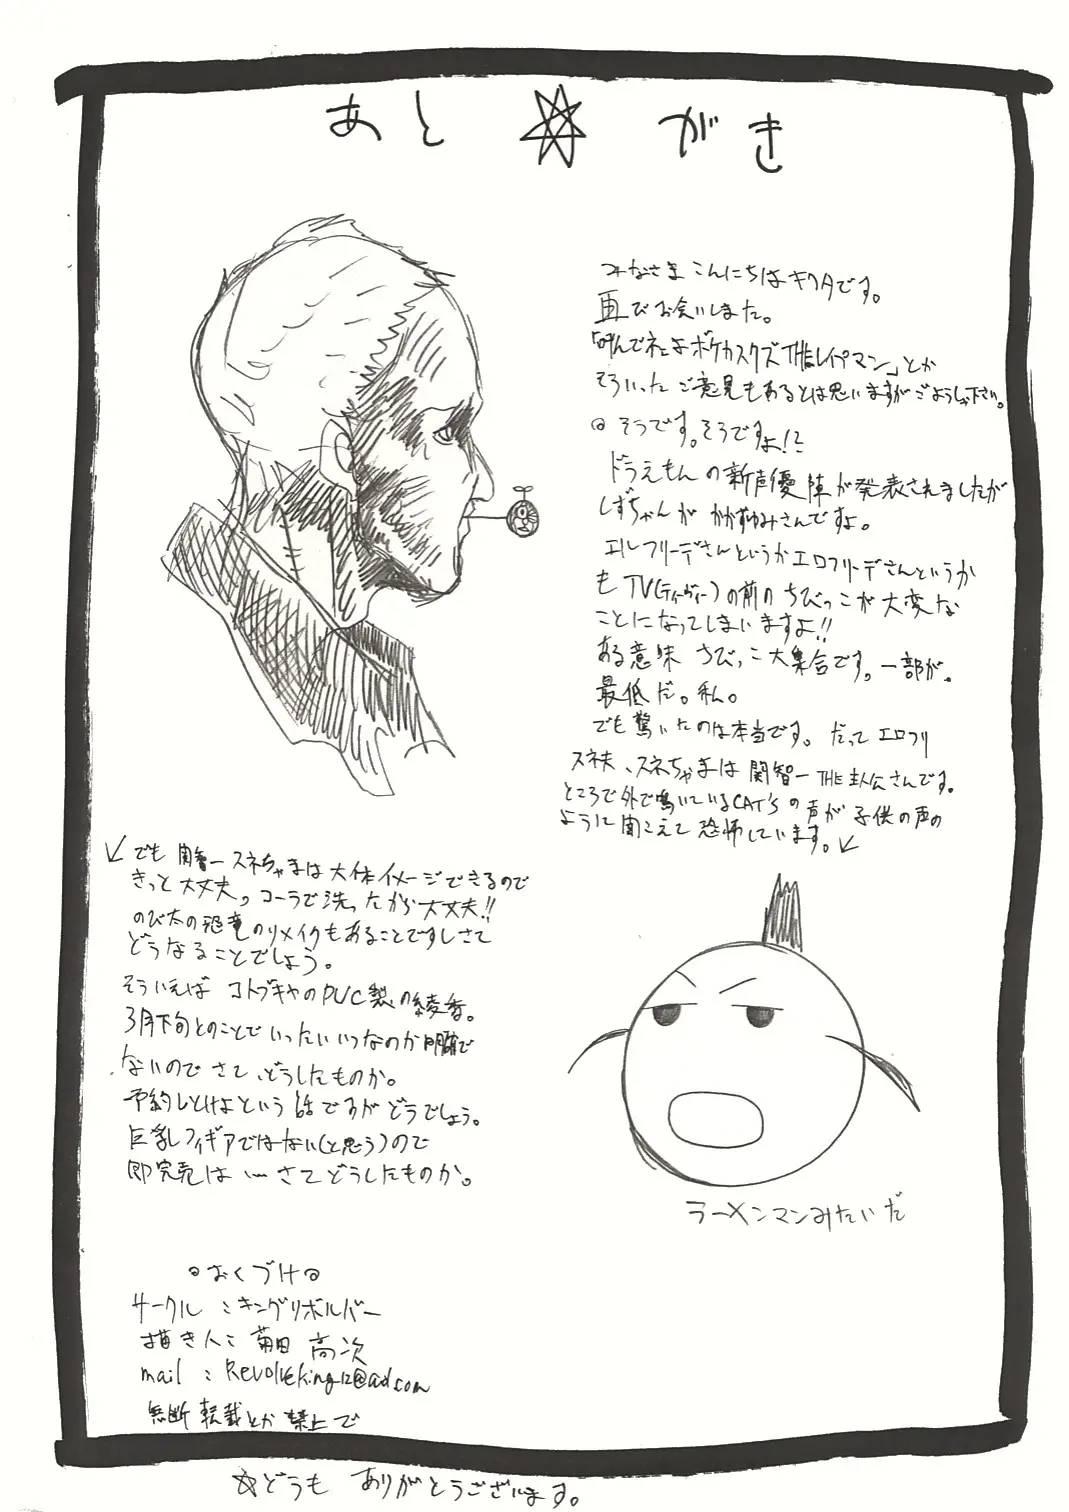 あと☆がき
みなさまこんにちはキクタです。
再びお会いしました。
「呼んでネェよボケカスクズTHEレイプマン」とか
そういったご意見もあるとは思いますがごようしゃ下さい。
◎そうです。そうですよ!?
ドラえもんの新声優陣が発表されましたが
しずちゃんがかかずゆみさんですよ。
エルフリーデさんというかエロフリーデさんというか
もTV(ティーヴィー)の前のちびっこが大変な
ことになってしまいますよ!!
ある意味ちびっこ大集合です。一部が。
最低だ。私。
でも驚いたのは本当です。だってエロフリ
スネ夫、スネちゃまは関智一THE主人公さんです。
ところで外で鳴いているCAT'sの声が子供の声の
ように聞こえて恐怖しています。↙
↙でも関智一スネちゃまは大体イメージできるので
きっと大丈夫。コーラで洗ったから大丈夫!!
のび太の恐竜のリメイクもあることですしさて
どうなることでしょう。
そういえばコトブキヤのPVC製の綾香。
3月下旬とのことでいったいいつなのか明確で
ないのでさて、どうしたものか。
予約しとけよという話ですがどうでしょう。
巨乳フィギアではない(と思う)ので
即完売は…さてどうしたものか。
ラーメンマンみたいだ
◎おくづけ◎
サークル:キングリボルバー
描き人:菊田 高次
mail:
無断転載とか禁止で
☆どうもありがとうございます。